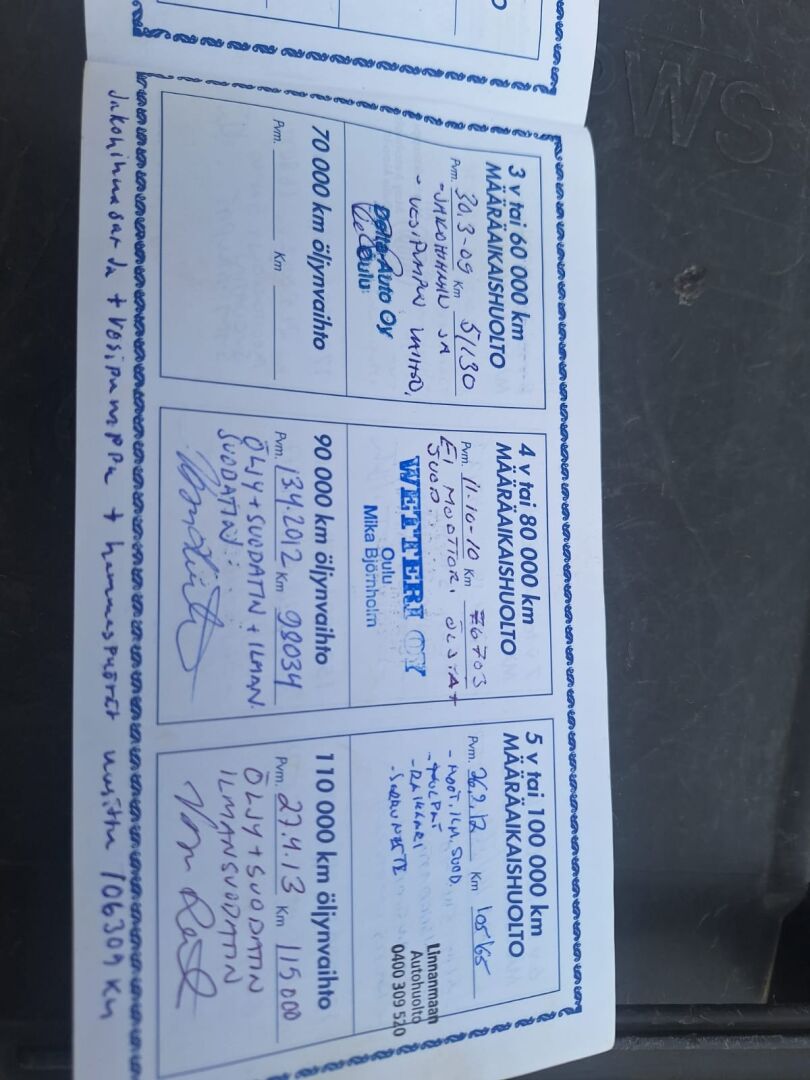 3 v tai 60 000 km
MÄÄRÄAIKAISHUOLTO
Pvm. 30.3-09 Km 51130
-JAKOHIHNAN JA
- VESIPUMPUN VAIHTO,
Delta-Auto Oy
Oulu
4 v tai 80 000 km
MÄÄRÄAIKAISHUOLTO
Pvm. 11.10-10 Km 76703
EI MOOTTORI ÖLJYÄ+
SUOD.
WETTERI OY
Oulu
Mika Björnholm
5 v tai 100 000 km
MÄÄRÄAIKAISHUOLTO
Pvm. 26.9.12 Km 105165
- MOOT. ILM. SUOD.
- TULPAT
- RAIKKARI
- JARRUNESTE
Linnanmaan
Autohuolto
0400 309 520
70 000 km öljynvaihto
Pvm. Km
90 000 km öljynvaihto
Pvm. 13.4.2012 Km 98034
ÖLJY+SUODATIN + ILMAN
SUODATIN
110 000 km öljynvaihto
Pvm. 27.4.13 Km 115000
ÖLJY+SUODATIN
ILMANSUODATIN
Jakohihnasarja + vesipumppu + hammaspyörät 106309 km